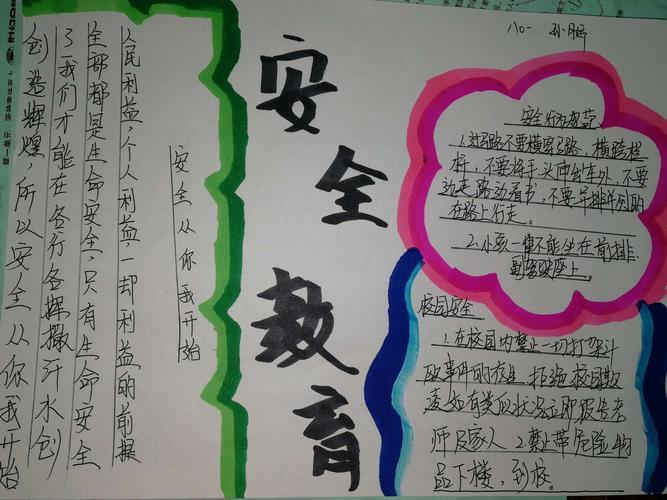 安全教育
八〇一 孙鹏
安全从你我开始
人民利益，个人利益一却利益的前提
全部都是生命安全，只有生命安全
了我们才能在各行各挥撒汗水创
创造辉煌，所以安全从你我开始
安全行为规范
1.过马路不要横穿马路，横跨栏
杆，不要将手、头伸出车外，不要
边走路边看书，不要并排并列的
在路上行走。
2.小孩一律不能坐在前排，
副驾驶座上。
校园安全
1.在校园内禁止一切打架斗
殴事件的发生，拒绝校园欺
凌如有类似状况立即报告老
师及家人 2.禁止带危险物
品下楼，到校。